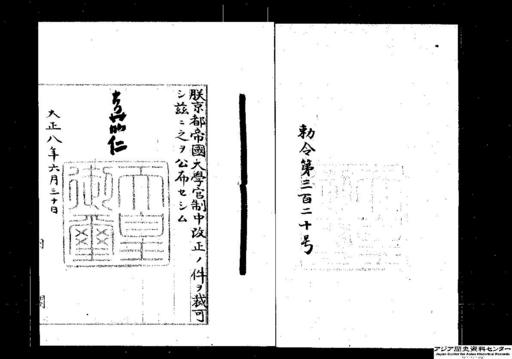 勅令第三百二十号
朕京都帝國大學官制中改正ノ件ヲ裁可
シ茲ニ之ヲ公布セシム
嘉仁
天皇
御璽
大正八年六月三十日
アジア歴史資料センター
Japan Center for Asian Historical Records